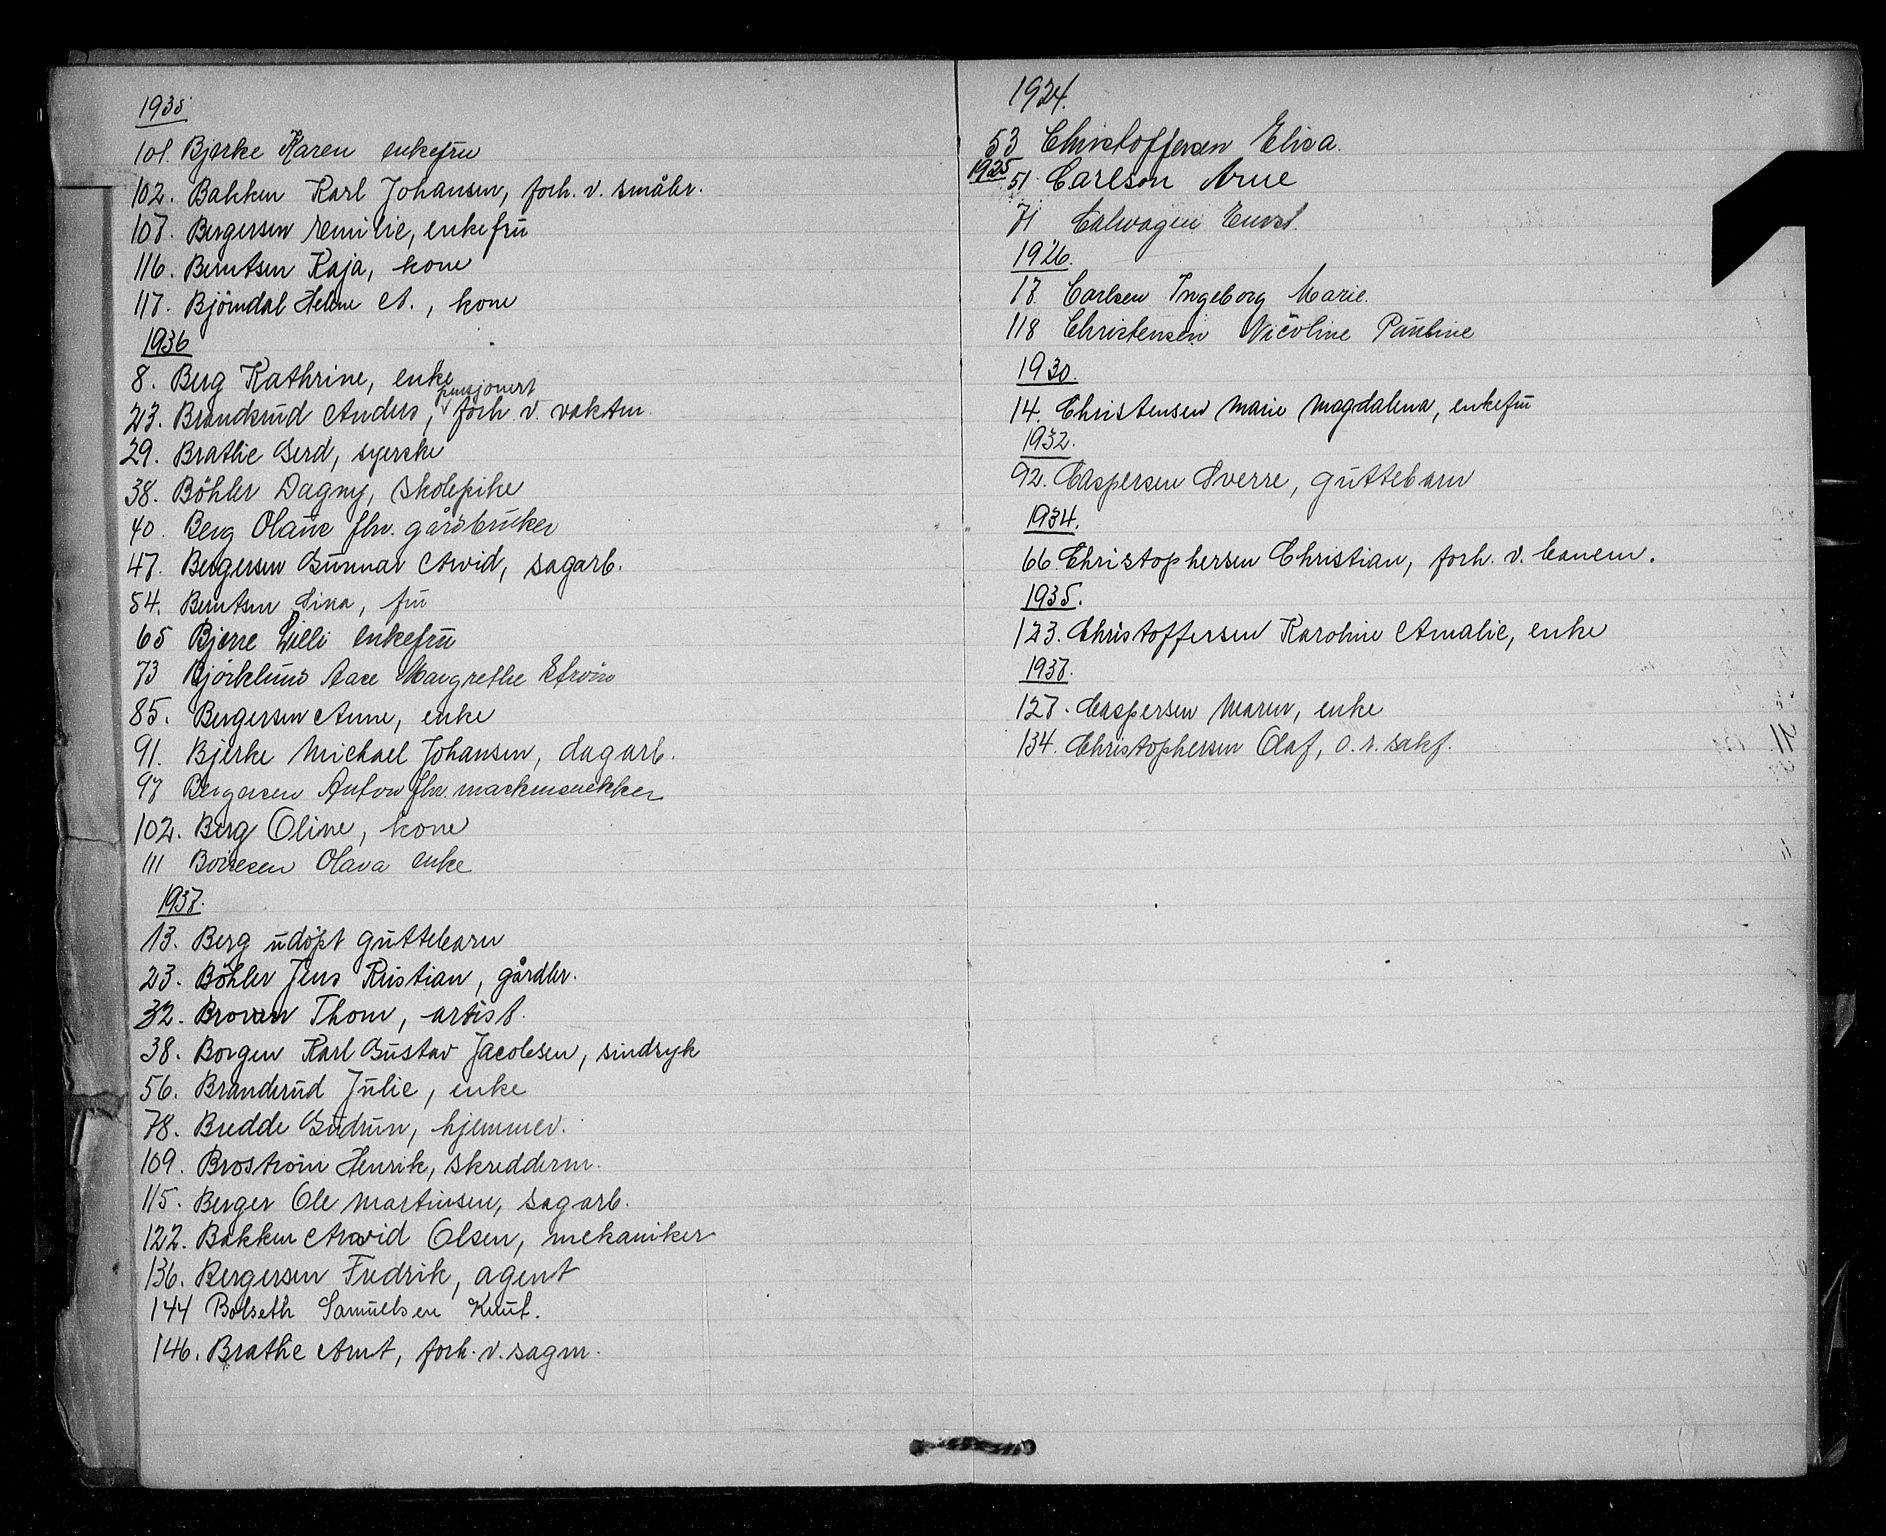 1935
101. Bjerke Karen enkefru
102. Bakken Karl Johansen, forh. v. småbr.
107. Bergersen Emilie, enkefru
116. Berntsen Kaja, kone
117. Bjørndal Helene A., kone
1936
8. Berg Kathrine, enke
pensjonert
23. Brandsrud Anders, forh. v. vaktm.
29. Brathe Gerd, syerske
38. Bøhler Dagny, skolepike
40. Berg Olaus fhv. gårdbruker
47. Bergersen Gunnar Arvid, sagarb.
54. Berntsen Lina, fru
65 Bjerre Lilli enkefru
73 Bjørklund Aase Margrethe Strøm
85. Bergersen Anne, enke
91. Bjerke Michael Johansen, dagarb.
97 Bergersen Anton fhv. maskinsnekker
102. Berg Oline, kone
111 Boiresen Olava enke
1937.
13. Berg udøpt guttebarn
23. Bøhler Jens Kristian, gårdbr.
32. Brovan Thom, artist.
38. Borgen Karl Gustav Jacobsen, sindsyk
56. Brandsrud Julie, enke
78. Bredde Gudrun, hjemmev.
109. Brostrøm Henrik, skredderm.
115. Berger Ole Martinsen, sagarb.
122. Bakken Arvid Olsen, mekaniker
136. Bergersen Fredrik, agent
144 Bolseth Samuelsen Knut.
146. Brathe Arnt, forh. v. sagm.
1924.
53 Christoffersen Elisa.
1925 51. Carlson Arne
71 Calwagen Ernst.
1926.
17. Carlsen Ingeborg Marie.
118 Christensen Nicoline Pauline
1930.
14. Christensen Marie Magdalena, enkefru
1932.
92. Caspersen Sverre, guttebarn
1934.
66 Christophersen Christian, forh. v. banem.
1935.
123. Christoffersen Karoline Amalie, enke
1937.
127. Caspersen Maren, enke
134. Christophersen Olaf, o.r. sakf.